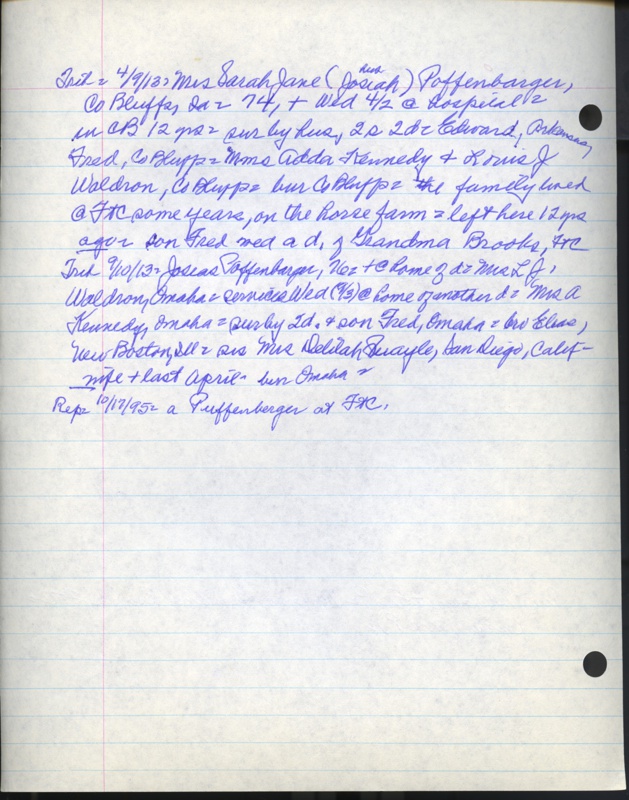 Trib = 4/9/13 = Mrs Sarah Jane (hus Josiah) Poffenbarger,
Co Bluffs, Ia = 74, + Wed 4/2 @ hospital =
in CB 12 yrs = sur by hus, 2s 2d = Edward, Arkansas,
Fred, Co Bluffs = Mms Adda Kennedy & Louis J
Waldron, Co Bluffs = bur Co Bluffs = the family lived
@ FtC some years, on the horse farm = left here 12 yrs
ago = son Fred wed a d. of Grandma Brooks, FtC
Trib 9/10/13 = Josias Poffenbarger, 76 = + @ home of d = Mrs L J.
Waldron, Omaha = services Wed (9/3) @ home of another d = Mrs A
Kennedy, Omaha = sur by 2d. & son Fred, Omaha = bro Elias,
New Boston, Ill = sis Mrs Delilah Swayle, San Diego, Calif -
wife + last April - bur Omaha =
Rep = 10/17/95 = a Puffenberger at FtC.